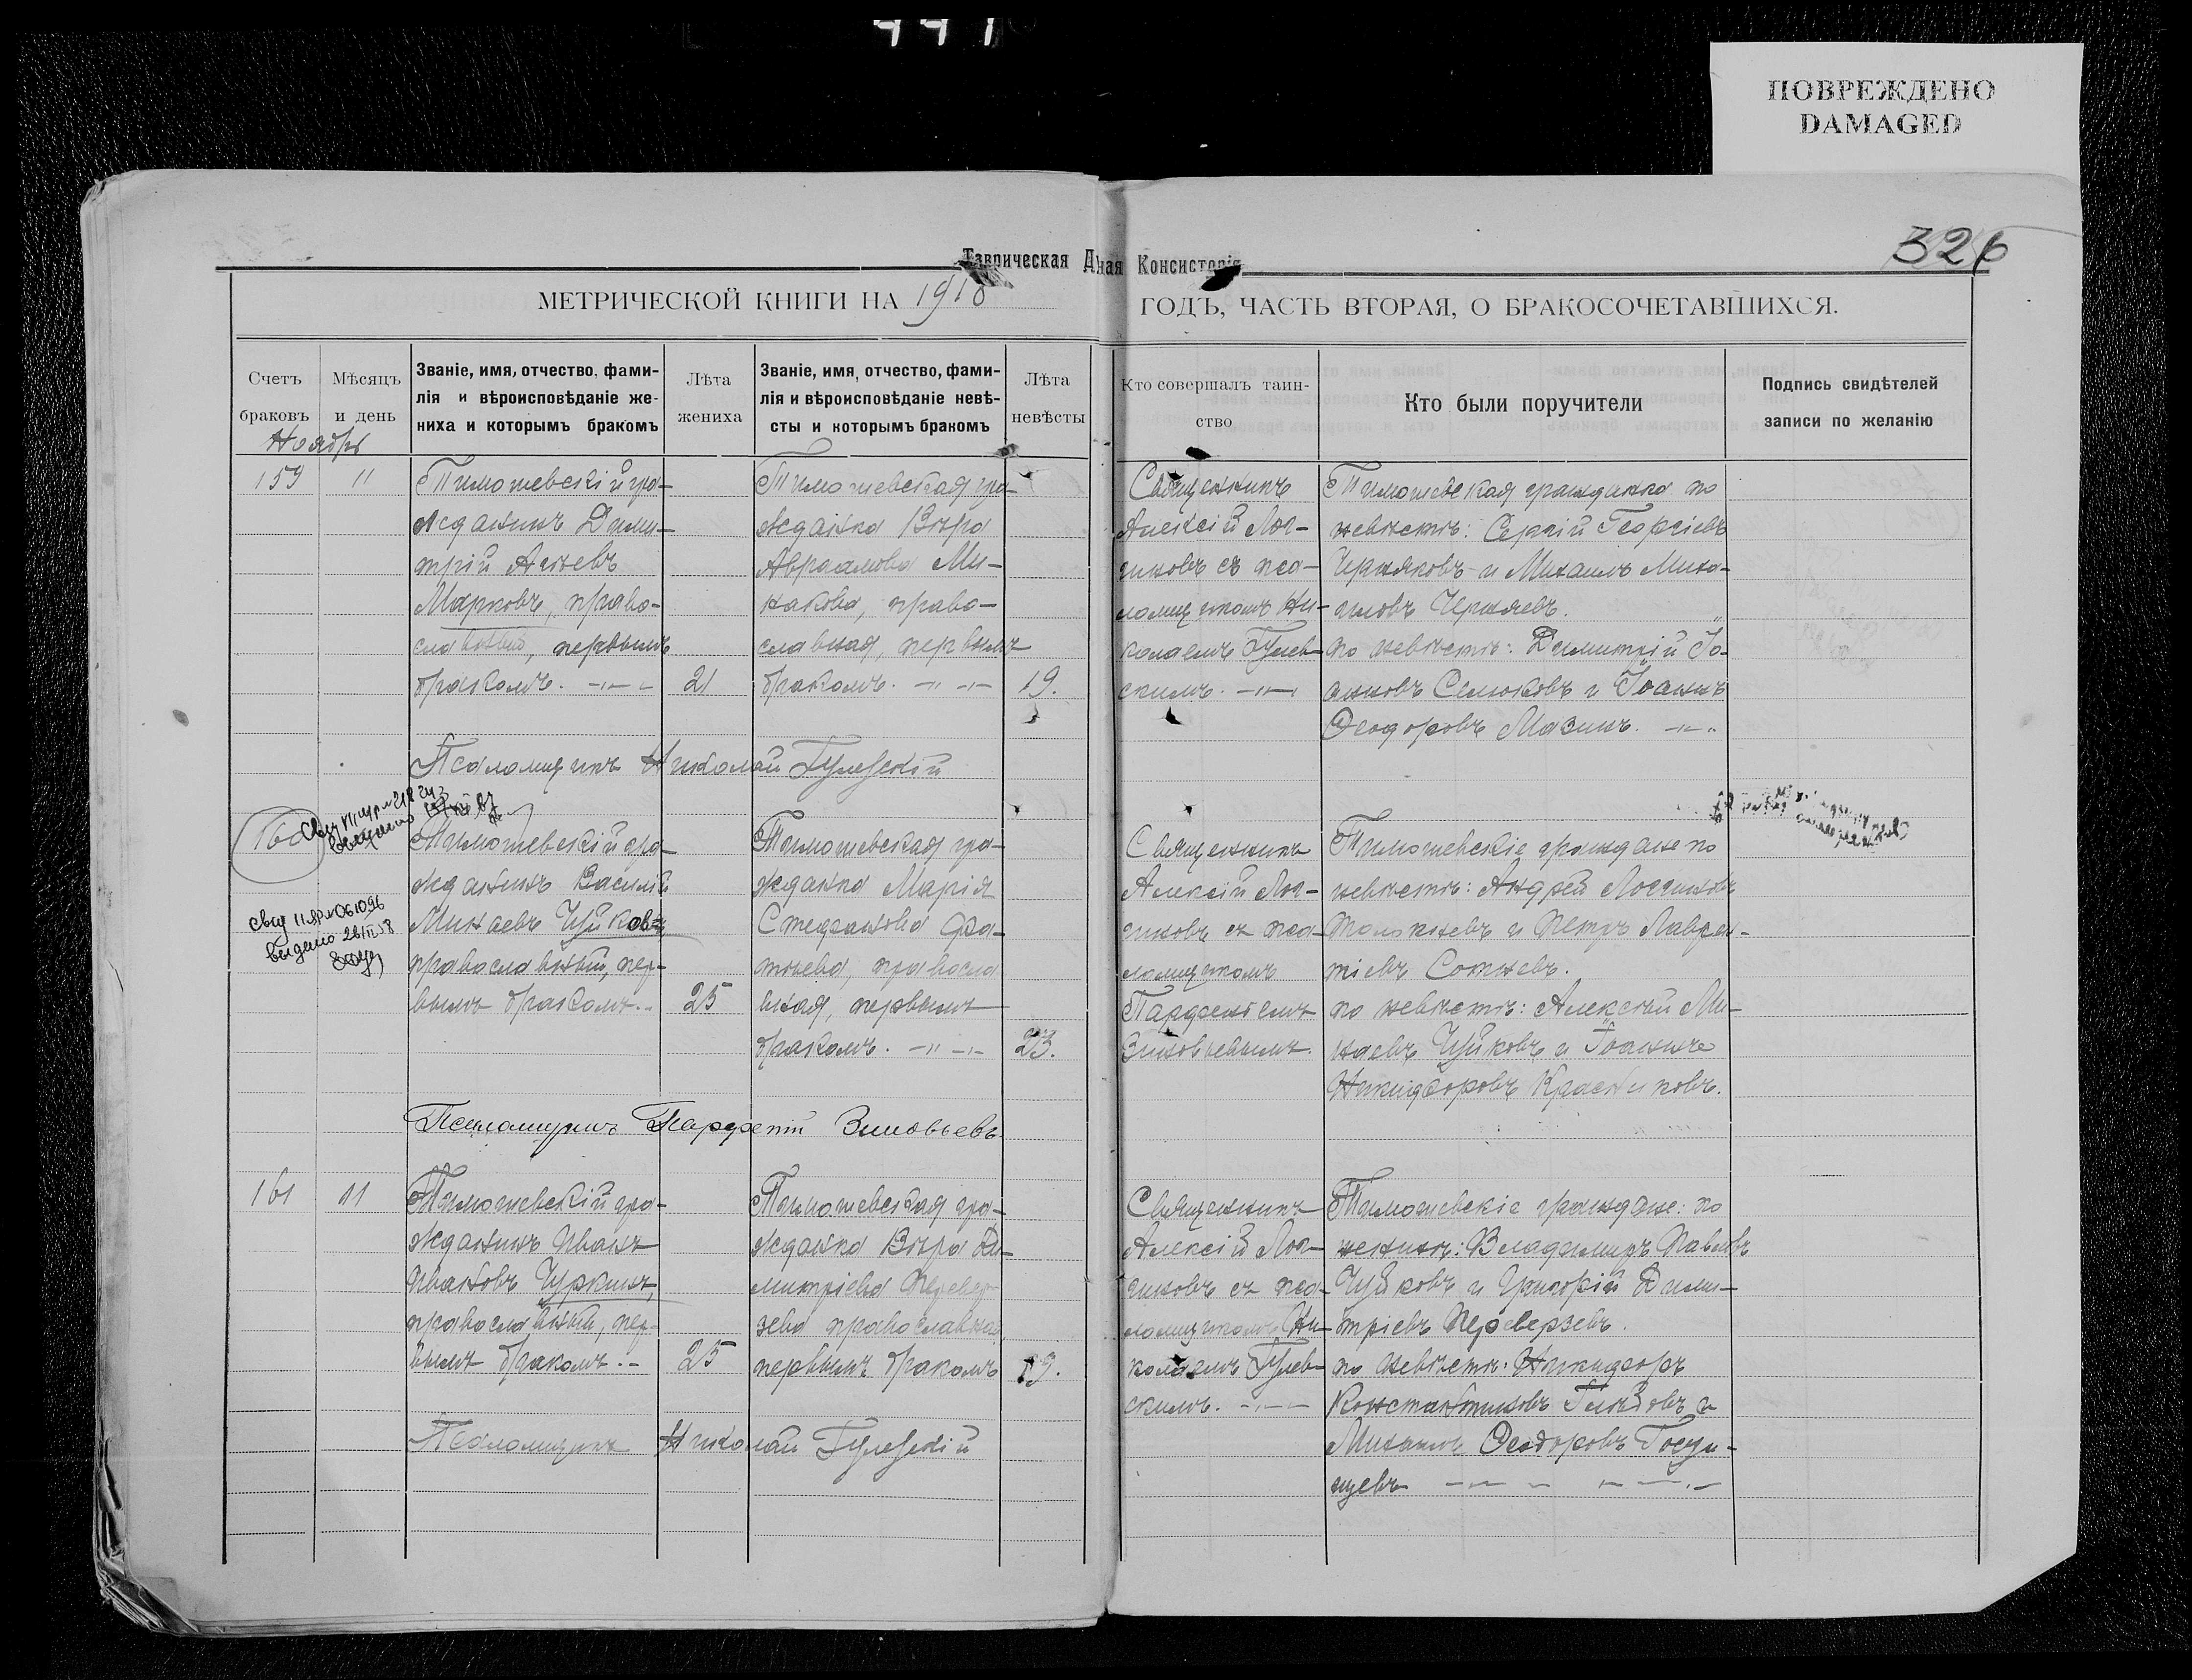 ПОВРЕЖДЕНО
DAMAGED
326
Таврическая Д ная Консисторія
МЕТРИЧЕСКОЙ КНИГИ НА 1918 ГОДЪ, ЧАСТЬ ВТОРАЯ, О БРАКОСОЧЕТАВШИХСЯ.
Счетъ браковъ
Мѣсяцъ и день
Званіе, имя, отчество, фами-
лія и вѣроисповѣданіе же-
ниха и которымъ бракомъ
Лѣта жениха
Званіе, имя, отчество, фами-
лія и вѣроисповѣданіе невѣ-
сты и которымъ бракомъ
Лѣта невѣсты
Кто совершалъ таин-
ство
Кто были поручители
Подпись свидѣтелей
записи по желанію
Ноябрь
159
11
Тимошевскій гра-
жданинъ Дими-
трій
Марковъ, право-
славный, первымъ
бракомъ.
21
Тимошевская гра-
жданка Вѣра
Авраамова Ми-
накова, право-
славная, первымъ
бракомъ.
19.
Священникъ
Алексій Лог-
гиновъ съ пса-
ломщикомъ Ни-
колаемъ Гулев-
скимъ.
Тимошевская гражданка по
невѣстѣ: Сергій Георгіевъ
Черняковъ и Михаилъ Миха-
иловъ Черняевъ.
по невѣстѣ: Димитрій Іо-
анновъ Сенюковъ и Іоаннъ
Ѳеодоровъ Мазинъ.
Псаломщикъ Николай Гулевскій
160
Тимошевскій гра-
жданинъ Василій
Минаевъ Чуйковъ
православный, пер-
вымъ бракомъ.
25
Тимошевская гра-
жданка Марія
Стефанова Фа-
тьева, правосла
вная, первымъ
бракомъ.
23.
Священникъ
Алексій Лог-
гиновъ съ пса-
ломщикомъ
Парфеніемъ
Зиновьевымъ.
Тимошевскіе граждане по
невѣстѣ: Андрей Логгиновъ
Толокневъ и Петръ Лаврен-
тіевъ Сотневъ.
по невѣстѣ: Алексѣй Ми-
наевъ Чуйковъ и Іоаннъ
Никифоровъ Красниковъ.
Псаломщикъ Парфеній Зиновьевъ.
161
11
Тимошевскій гра-
жданинъ Иванъ
Ивановъ Чуркинъ,
православный, пер-
вымъ бракомъ.
25
Тимошевская гра-
жданка Вѣра Ди-
митріева Перевер-
зева православная
первымъ бракомъ
19.
Священникъ
Алексій Лог-
гиновъ съ пса-
ломщикомъ Ни-
колаемъ Гулев-
скимъ.
Тимошевскіе граждане: по
женихѣ: Владимиръ Павловъ
Чуйковъ и Григорій Дими-
тріевъ Переверзевъ.
по невѣстѣ: Никифоръ
Константиновъ Глѣбовъ и
Михаилъ Ѳеодоровъ
Псаломщикъ Николай Гулевскій